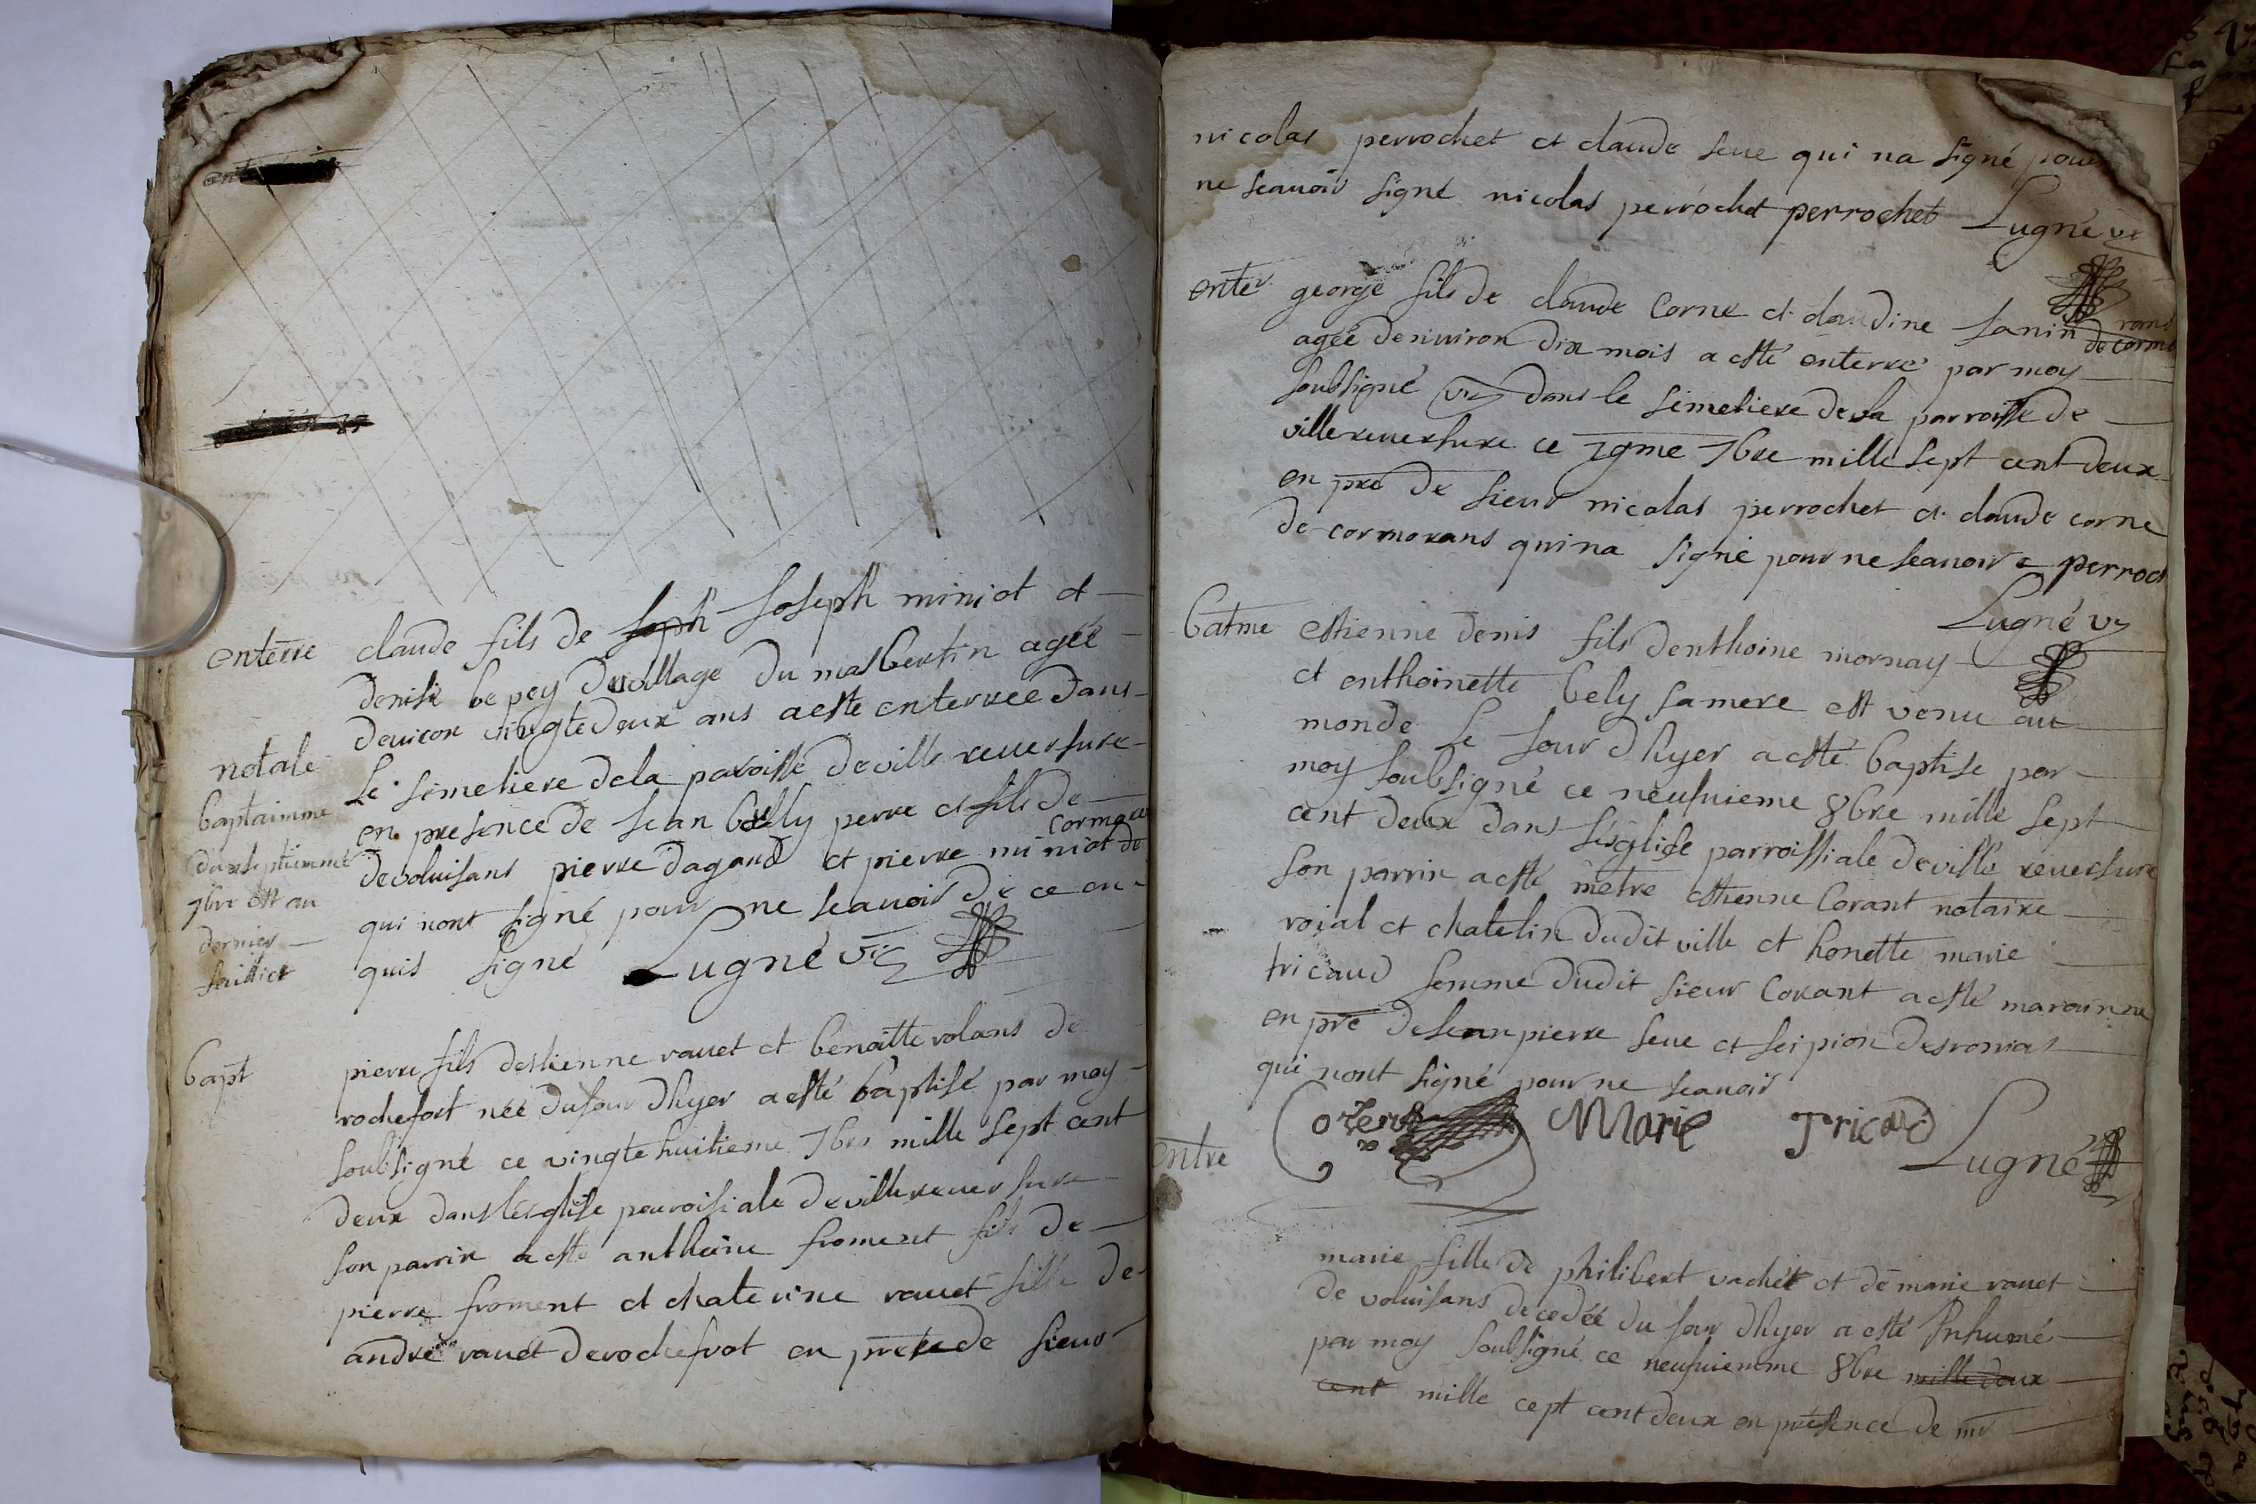 enterre
claude fils de soph Joseph miniot et
denise bepey du village du masbertin agée
denviron vingtedeux ans aeste enterree dans
le simetiere dela paroisse de ville reuersure
en presence de Jean belly perre et fils de
deuoluisans pierre dagand et pierre miniot de cormo
qui nont signé pour ne scauoir de ce en
quis signé Lugné vic
notale
baptaimme
du septiemme
7bre est au
dernier
feuillet
bapt
pierre fils destienne rauet et benoitte volans de
rochefort néé du Jour dhyer a esté baptisé par moy
soubsigné ce vingte huitieme 7bre mille sept cent
deux dans lésglise pouroisiale de villereuersure
son parrin a esté anthoine froment fils de
pierre froment et chaterine rauet fille de
andré rauet de rochefrot en pre de sieur
nicolas perrochet et claude seue qui na signé pour
ne scauoir signé nicolas perrochet perrochet Lugné vi
enter
george fils de claude Corne et claudine Janin de cormo rans
agéé denuiron dix mois a esté enterré par moy
soubsigné vic dans le simetiere de la parroisse de
villereuersure ce 29me 7bre mille sept cent deux
en pre de sieur nicolas perrochet et claude corne
de cormorans qui na signé pour ne scauoir perroch
Lugné vi
batme
estienne denis fils denthoine mornay
et enthoinette bely sa mere est venu au
monde le Jour dhyer a esté baptise par
moy soubsigné ce neufuieme 8bre mille sept
cent deux dans lésglise parroissiale de ville reuersure
son parrin a esté mètre estienne Corant notaire
roial et chatelin dudit ville et honette marie
tricaud femme dudit sieur Corant a esté marainne
en pre de Jean pierre seue et scipion desronias
qui nont signé pour ne scauoir
Corent Marie Tricaud
Lugné
entre
marie fille de philibert vachet et de marie rauet
de voluisans decedéé du Jour dhyer a esté Inhumé
par moy soubsigné ce neufuiemme 8bre mille deux
cent mille cept cent deux en présence de mr